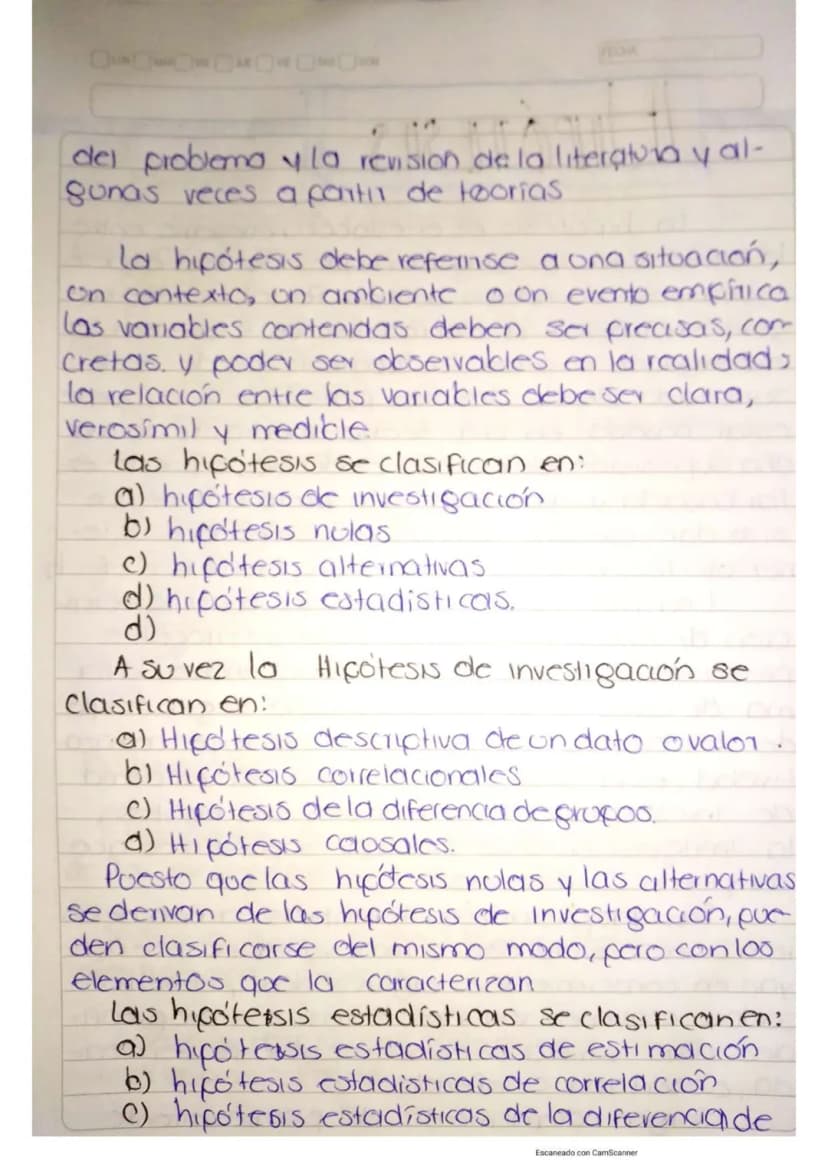 FECHA
del problema y la revision de la literatura y al-
gunas veces a partir de teorías
La hipótesis debe referirse a una situación,
un contexto, un ambiente o un evento empírica
las variables contenidas deben ser precisas, con
cretas. y poder ser observables en la realidad;
la relación entre las variables debe ser clara,
verosímil y medible
las hipótesis se clasifican en:
a) hipótesis de investigación
b) hipótesis nulas
c) hipótesis alternativas
d) hipótesis estadísticas.
d)
A su vez la Hipótesis de investigación se
clasifican en:
a) Hipótesis descriptiva de un dato o valor.
b) Hipótesis correlacionales
c) Hipótesis de la diferencia de grupos.
d) Hipótesis causales.
Puesto que las hipótesis nulas y las alternativas
se derivan de las hipótesis de investigación, pue-
den clasificarse del mismo modo, pero con los
elementos que la caracterizan
Las hipótesis estadísticas se clasifican en:
a) hipótesis estadísticas de estimación
b) hipótesis estadisticas de correlación
c) hipótesis estadísticas de la diferencia de
Escaneado con CamScanner